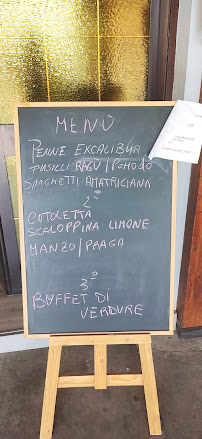 MENU
PENNE EXCALIBUR
FUSILLI: RAGU / POMODO
SPAGHETTI: AMATRICIANA
2°
COTOLETTA
SCALOPPINA LIMONE
MANZO / PRAGA
3°
BUFFET DI
VERDURE